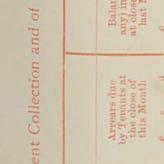 ent Collection and of
Arrears due
by Tenants at
the close of
this Month
Balan
any) in
at close
last M
£ s d
£